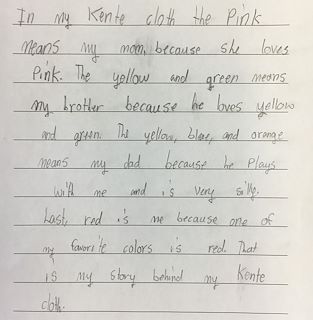 In my Kente cloth the Pink
means my mom, because she loves
Pink. The yellow and green means
my brother because he loves yellow
and green. The yellow, blue, and orange
means my dad because he Plays
with me and is very silly.
Last, red is me because one of
my favorite colors is red. That
is my story behind my Kente
cloth.